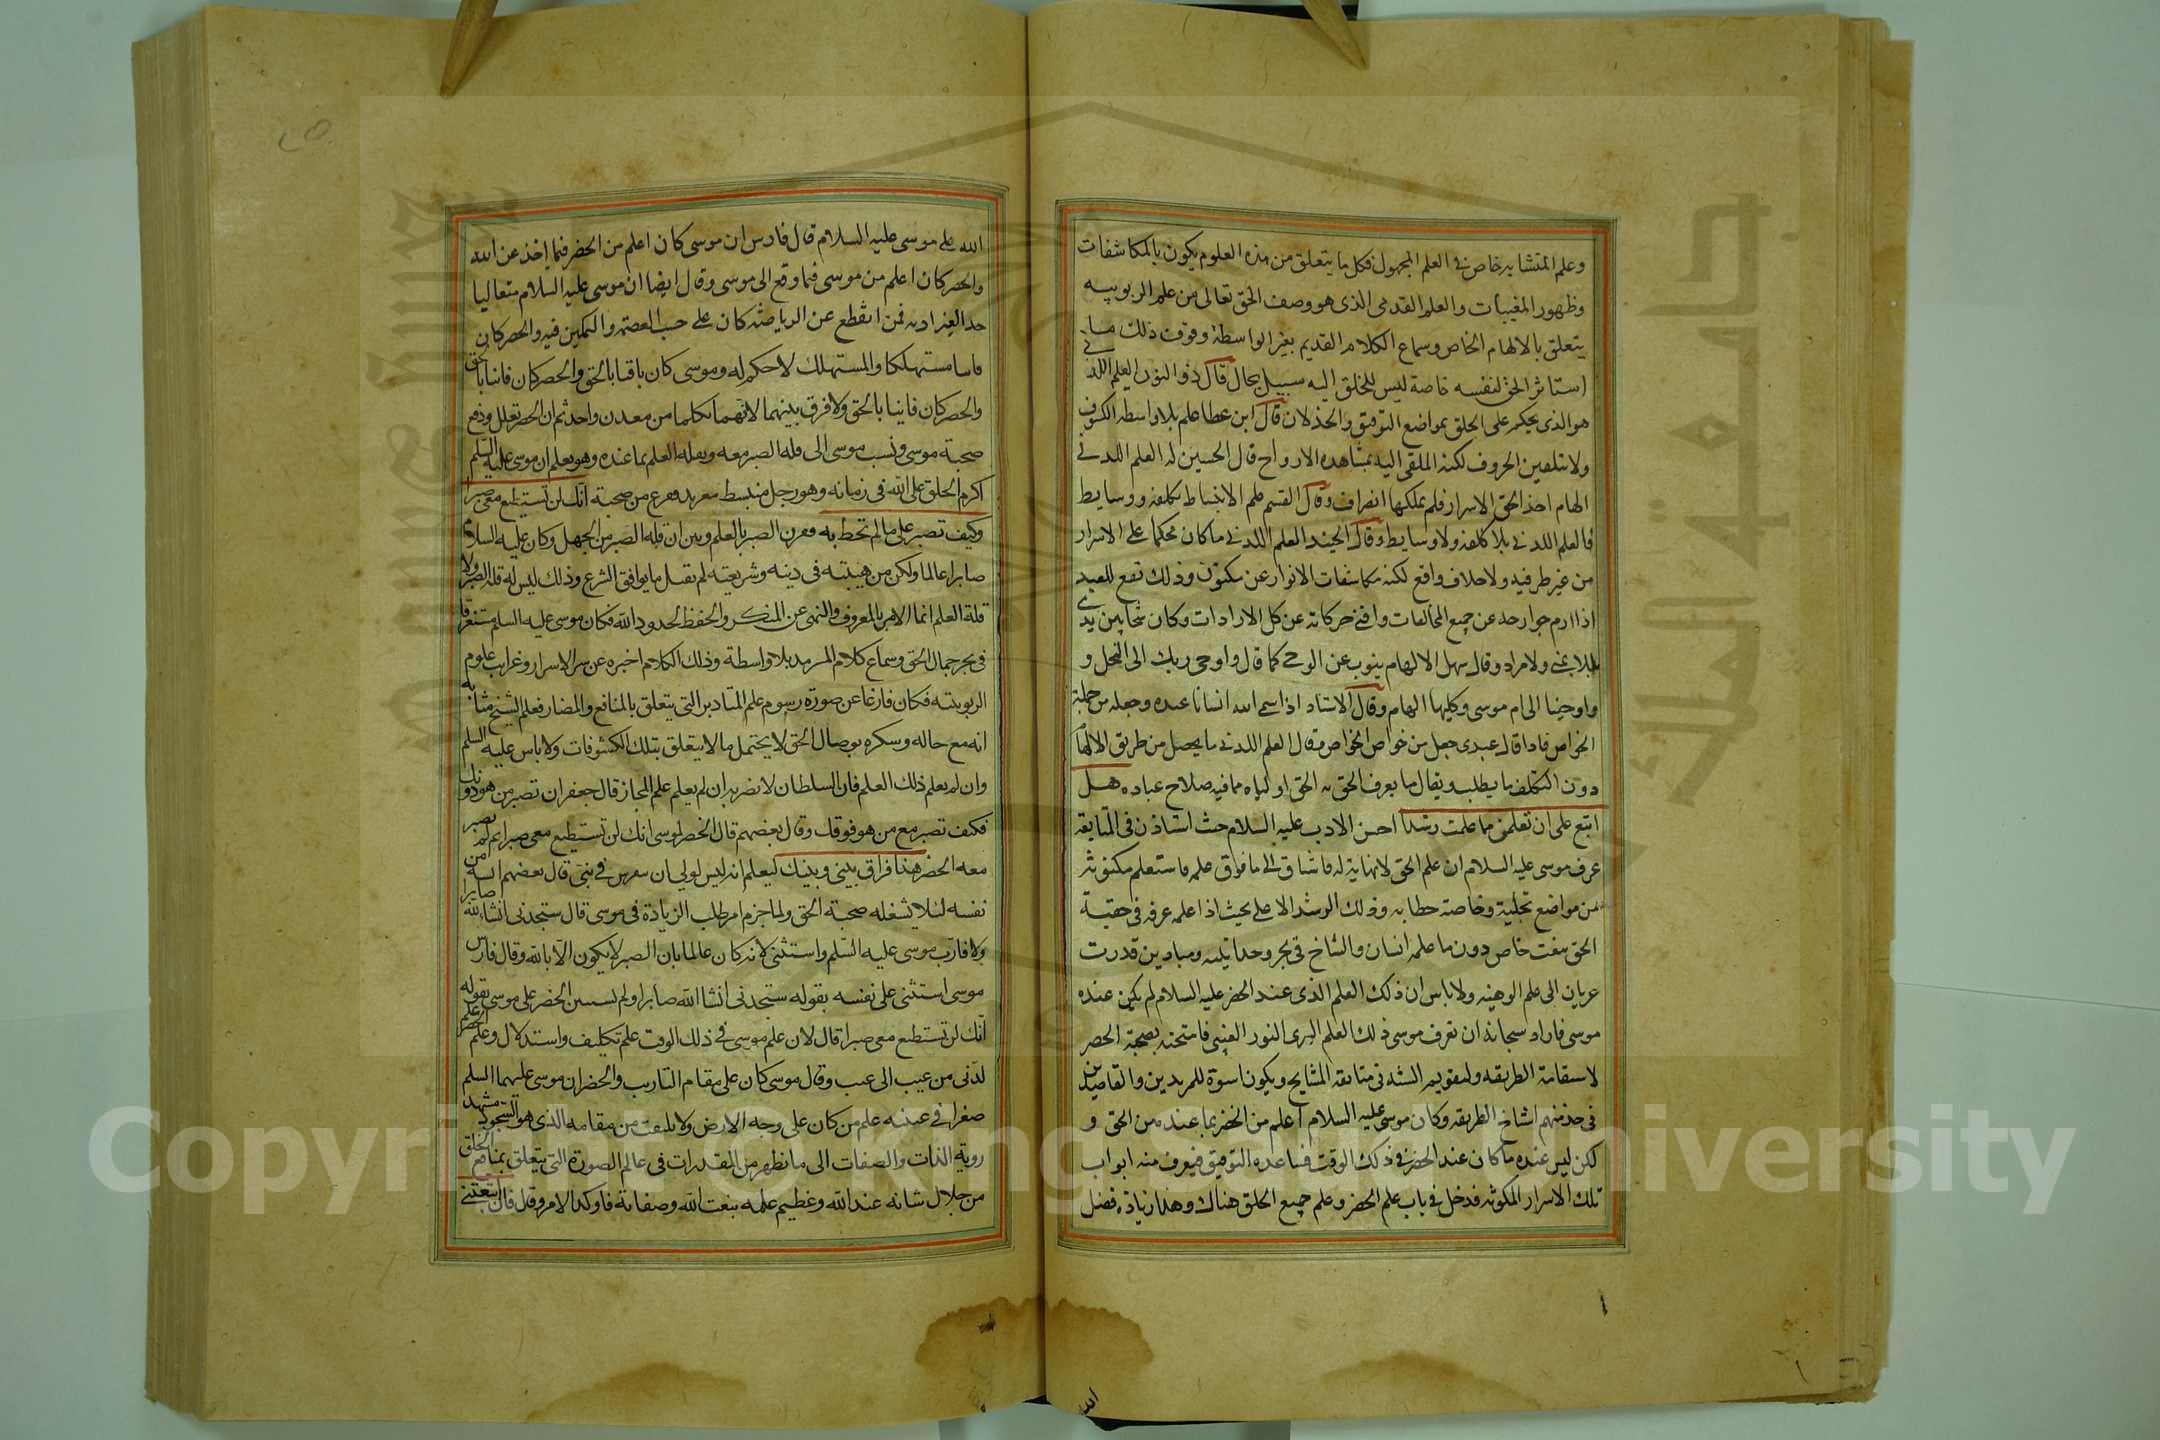 وعلم المتشابه خاص فى العلم المجهول فكل ما يتعلق من هذه العلوم يكون بالمكاشفات
وظهور المغيبات والعلم القدمى الذى هو وصف الحق تعالى من علم الربوبيه
يتعلق بالالهام الخاص وسماع الكلام القديم بغير الواسطة وفوق ذلك ما
استاثر الحق لنفسه خاصة ليس للخلق اليه سبيل بحال قال ذو النون العلم اللدنى
هو الذى يحكم على الخلق بمواضع التوفيق والخذلان قال ابن عطا علم بلا واسطه الكشوف
ولا بتلقين الحروف لكنه الملقى اليه بمشاهده الارواح قال الحسين له العلم اللدنى
الهام اخذ الحق الاسرار فلم يملكها انصراف وقال القسم علم الانبساط بكلفه ووسايط
فالعلم اللدنى بلا كلفه ولا وسايط وقال الجنيد العلم اللدنى ما كان محكما على الاسرار
من غير ظن فيه ولا خلاف واقع لكنه مكاشفات الانوار عن مكنون وذلك تقع للعبد
اذا لزم جوارحه عن جميع المخالفات وافنى حركاته عن كل الارادات وكان شخا بين يدى
بلا تمنى ولا مراد وقال سهل الالهام ينوب عن الوحى كما قال واوحى ربك الى النحل و
واوحينا الى ام موسى وكليهما الهام وقال الاستاد اذا اسمى الله انسانا عبده وجعله من جملة
الخواص فاذا قال عبدى جعل من خواص الخواص وقال العلم اللدنى ما يحصل من طريق الالهام
دون التكلف بما يطلب ويقال ما يعرف الحق به الحق اولياه مما فيه صلاح عباده هل
اتبع على ان تعلمن مما علمت رشدا احسن الادب عليه السلام حيث استاذن فى المتابعة
عرف موسى عليه السلام ان علم الحق لا نهاية له فاشتاق الى ما فوق علمه فاستعلم مكنونه
من مواضع تجلية وخاصة خطابه وذلك الرشد الاعلى بحيث اذا علمه عرفه فى حقية
الحق بنعت خاص دون ما علمه انسان والشاخ فى بحر وحدانيته وميادين قدرت
عريان الى علم الوهيته ولا باس ان ذلك العلم الذى عند الخضر عليه السلام لم يكن عنده
موسى فاراد سبحانه ان يعرف موسى ذلك العلم السرى النور الغيبى فامتحنه بصحبة الخضر
لاستقامة الطريقه ولتقويم السنه فى متابعة المشايخ ويكون اسوة للمريدين والقاصدين
فى خدمتهم اشياخ الطريقه وكان موسى عليه السلام اعلم من الخضر بما عنده من الحق و
لكن ليس عنده ما كان عند الخضر فى ذلك الوقت فساعده التوفيق فيعرف منه ابواب
تلك الاسرار المكنونه فدخل فى باب علم الخضر وعلم جميع الخلق هناك وهذا زيادة فضل
الله على موسى عليه السلام قال فارس ان موسى كان اعلم من الخضر فيما اخذ عن الله
والخضر كان اعلم من موسى فيما وقع الى موسى وقال ايضا ان موسى عليه السلام
فمن انقطع عن الرياضة كان على حسب العصمة والتمكين فيه والخضر كان
فانيا مستهلكا والمستهلك لا حكم له وموسى كان باقيا بالحق والخضر كان فانيا بالحق
والخضر كان فانيا بالحق ولا فرق بينهما لانهما تكلما من معدن واحد ثم ان الخضر تعلل ودفع
صحبة موسى ونسب موسى الى قلة الصبر معه وبقلة العلم بما عنده وهو يعلم ان موسى عليه السلم
اكرم الخلق على الله فى زمانه وهو رجل منبسط معربد ففرع من صحبة انك لن تستطيع معى صبرا
وكيف تصبر على ما لم تحط به وقرن الصبر بالعلم وبين ان قلة الصبر من الجهل وكان عليه السلام
صابرا عالما ولكن من هيبته فى دينه وشريعته لم يقبل ما يوافق الشرع وذلك ليس له قلة الصبر ولا
قلة العلم انما الامر بالمعروف والنهى عن المنكر والحفظ لحدود الله فكان موسى عليه السلم مستغرقا
فى بحر جمال الحق وسماع كلام السرمد بلا واسطة وذلك الكلام اخبره عن سر الاسرار وغرايب علوم
الربوبيته فكان فارغا عن صورة رسوم علم المقادير التى يتعلق بالمنافع والمضار فعلم الشيخ مثابه
انه مع حاله وسكره بوصال الحق لا يحتمل ما لا يتعلق بتلك الكشوفات ولا باس عليه السلم
وان لم يعلم ذلك العلم فان السلطان لا يضر به ان لم يعلم علم المجاز قال جعفر ان تصبر من هو دونك
فكيف تصبر مع من هو فوقك وقال بعضهم قال الخضر لموسى انك لن تستطيع معى صبرا ثم لم يصبر
معه الخضر هذا فراق بينى وبينك ليعلم انه ليس لولى ان يتفرس فى نبى قال بعضهم ايسه من
نفسه لئلا يشغله صحبة الحق ولما جزم امر طلب الزيادة فى موسى قال ستجدنى انشاء الله صابرا
ولا فارب موسى عليه السلم واستثنى لانه كان عالما بان الصبر لا يكون الا بالله وقال فارس
موسى استثنى على نفسه بقوله ستجدنى انشا الله صابرا ولم يستثن الخضر على موسى بقوله
انك لن تستطيع معى صبرا قال لان علم موسى فى ذلك الوقت علم تكليف واستدلال وعلم الخضر علم
لدنى من غيب الى غيب وقال موسى كان على مقام التاديب والخضر ان موسى عليهما السلم
صغرا فى عينه علم من كان على وجه الارض ولا يلتفت من مقامه الذى هو مشهد
روية الذات والصفات الى ما يظهر من المقدرات فى عالم الصورة التى يتعلق بمنافع الخلق
من جلال شانه عند الله وعظيم علمه بنعت الله وصفاته فاوكد الامر وقل فان اتبعتنى
Copyright © King Saud University
جامعة الملك سعود